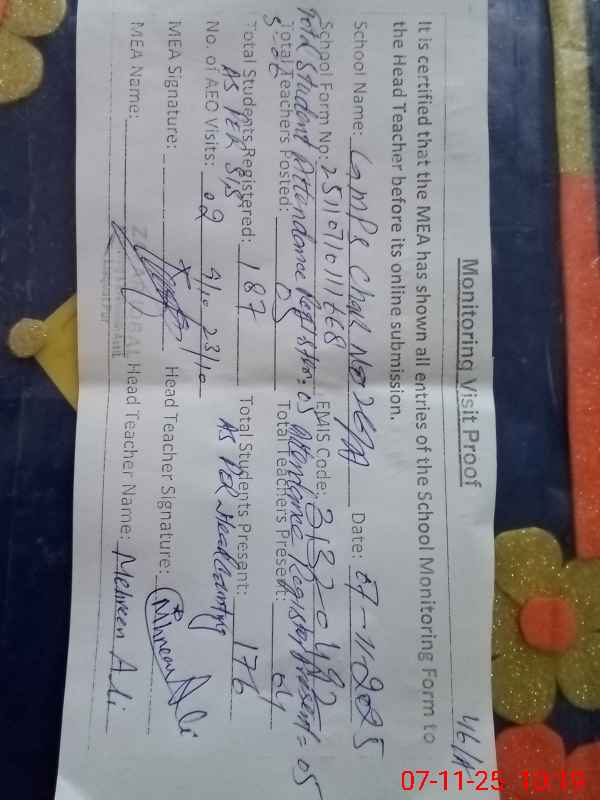 46/A
Monitoring Visit Proof
It is certified that the MEA has shown all entries of the School Monitoring Form to
the Head Teacher before its online submission.
School Name: GMPS Chak No 26/A Date: 07-11-2025
School Form No: EMIS Code:
Total Student Attendance Register: 05 Attendance Register Present = 05
Total Teachers Posted: 05 Total Teachers Present: 04
Total Students Registered: 187 Total Students Present: 176
AS PER SIS AS PER Headcounting
No. of AEO Visits: 02 9/10 23/10
MEA Signature: Head Teacher Signature: Mehreen Ali
MEA Name: Head Teacher Name: Mehreen Ali
07-11-25 10:19